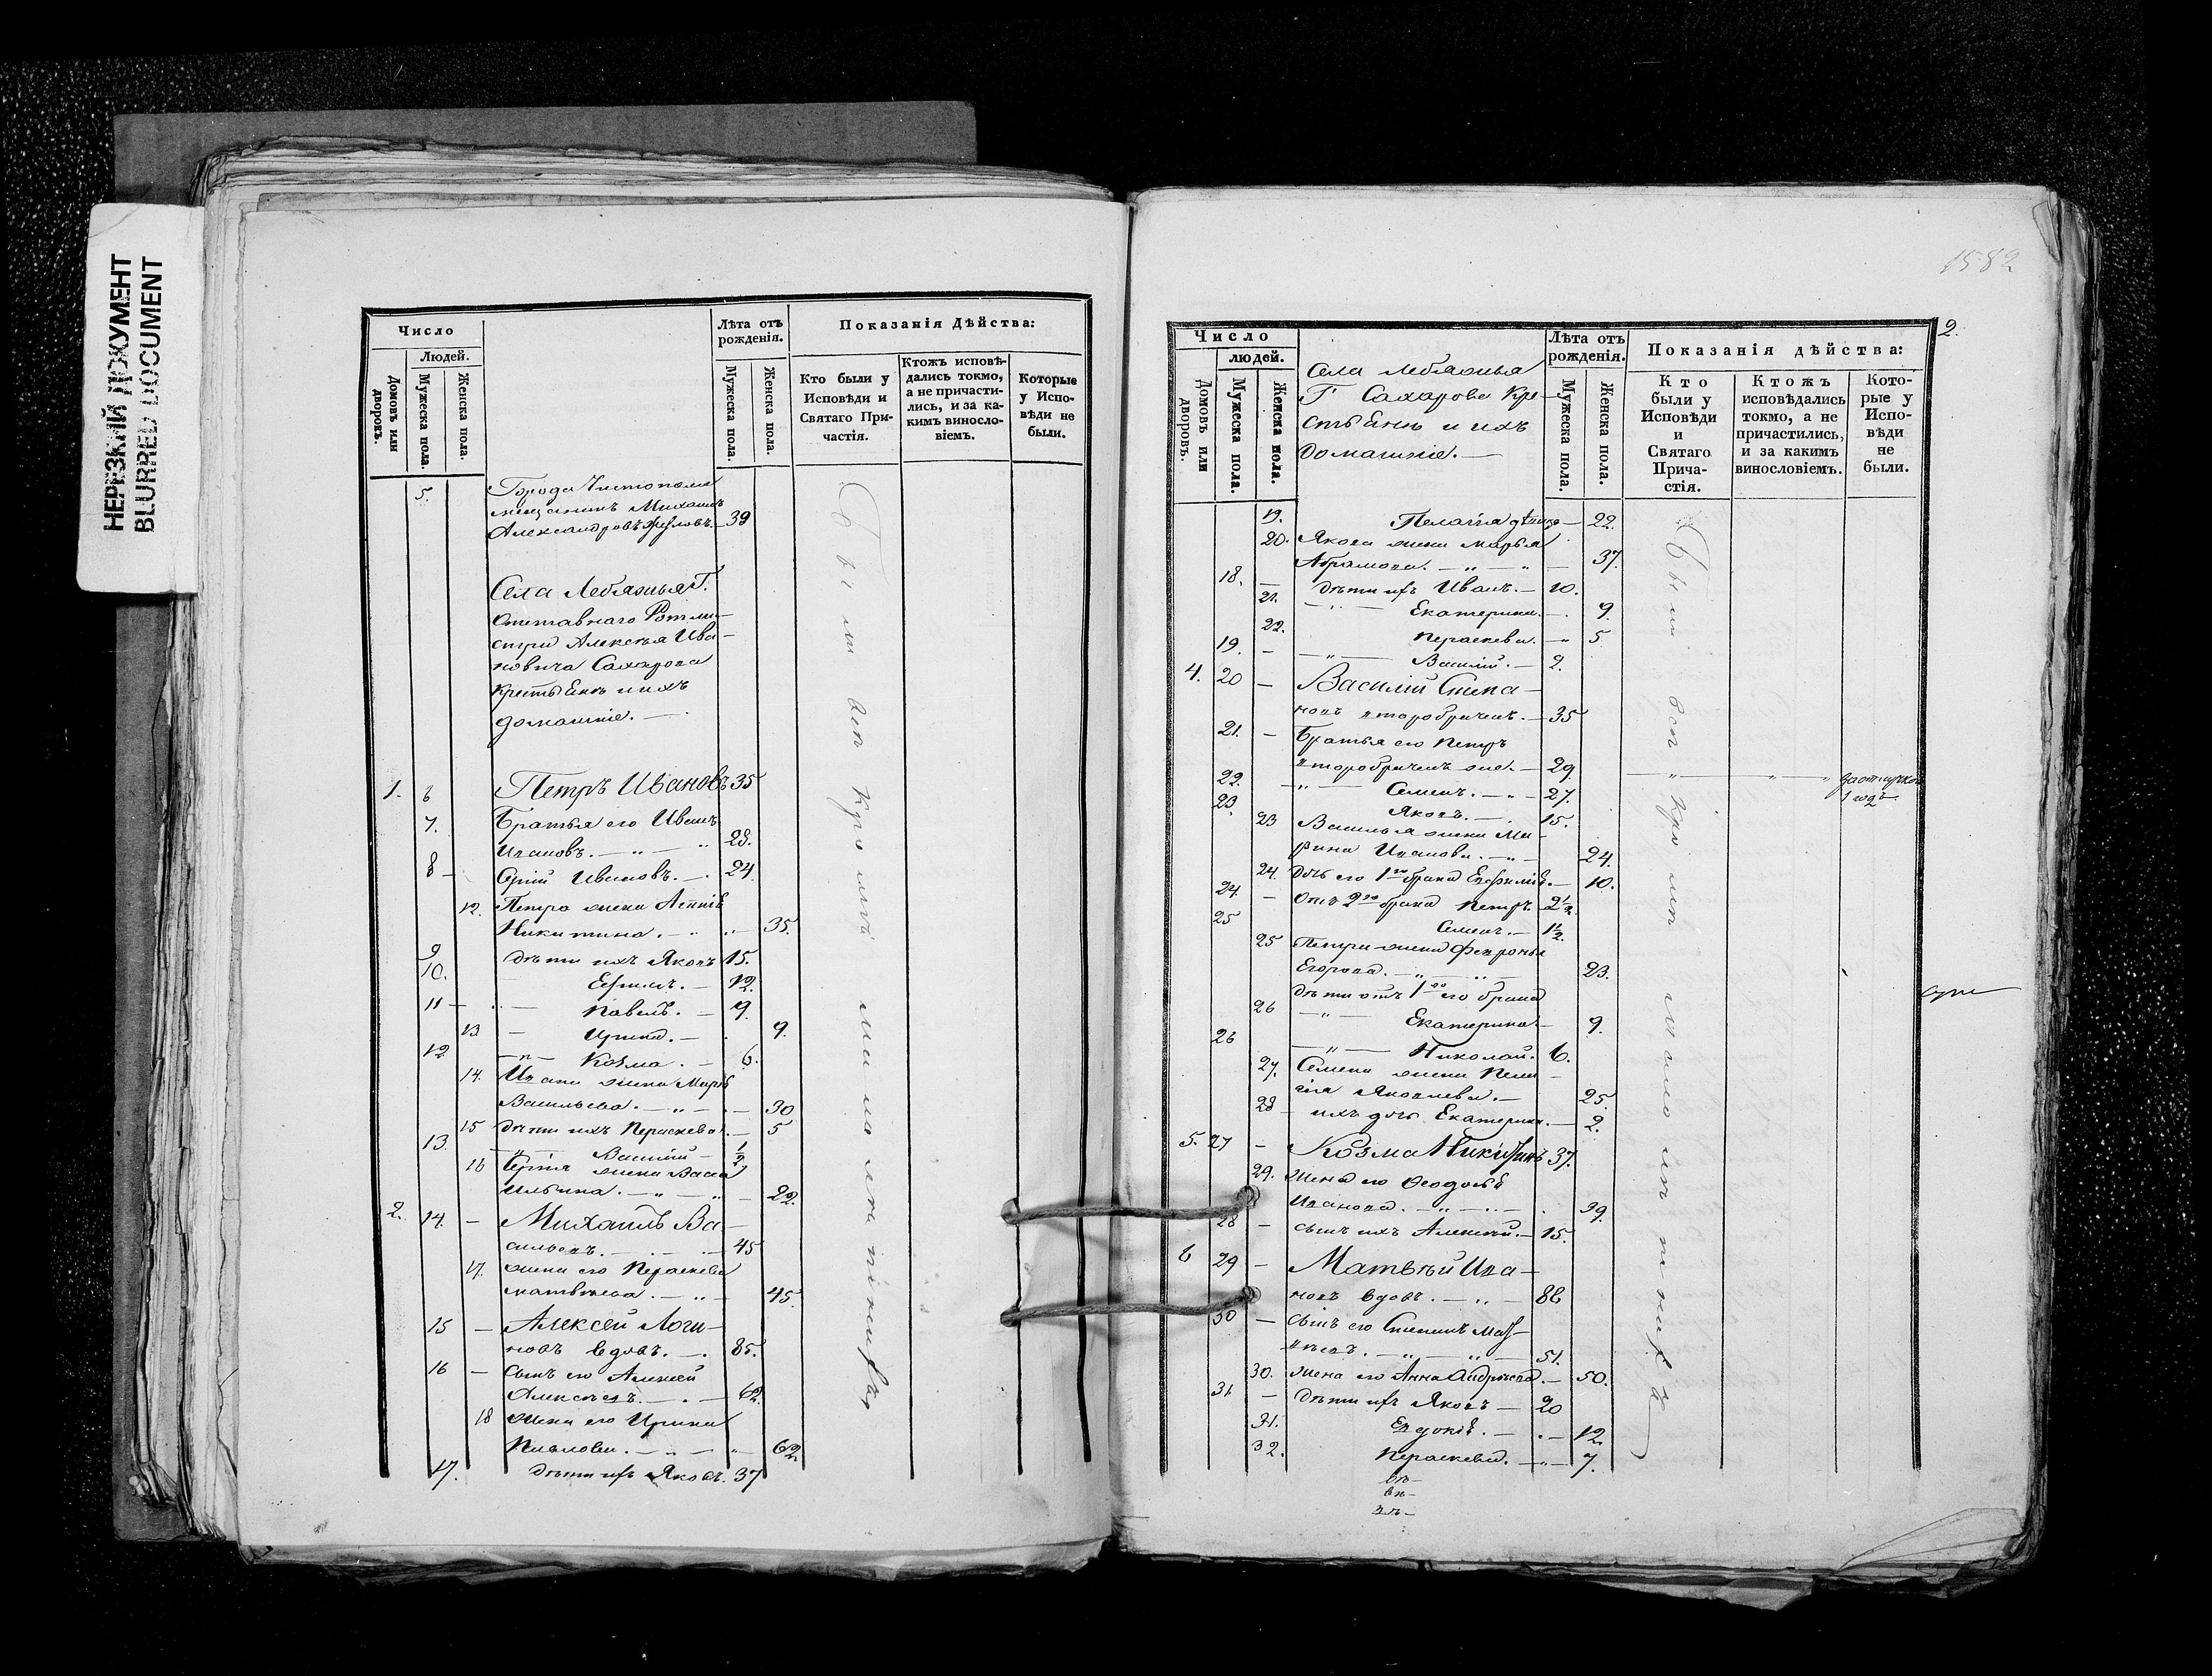 НЕРЕЗКИЙ ДОКУМЕНТ
BLURRED DOCUMENT
Число
Людей.
Домовъ или дворовъ.
Мужеска пола.
Женска пола.
Лѣта отъ рожденія.
Мужеска пола.
Женска пола.
Показанія Дѣйства:
Кто были у Исповѣди и Святаго При-
частія.
Ктожъ исповѣ-
дались токмо,
а не причасти-
лись, и за ка-
кимъ винослo-
віемъ.
Которые
у Испо-
вѣди не
были.
5. Города Чистополя
мещанинъ Михаилъ
Александровъ 39
Села Лебяжья Г.
отставнаго Ротми-
стра Алексѣя Ива-
новича Сахарова
крестьянѣ и ихъ
домашніе. —
1. 6 Петръ Ивановъ 35
7. Братья его Иванъ
Ивановъ. — " — " 28.
8 — Сергій Ивановъ. — 24
12. Петра жена
Никитина. — " — " 35.
9 дѣти ихъ Яковъ 15.
10. Ефимъ. — 12.
11 — Павелъ. — 9.
13 — Ирина. — 9.
12 — " — Козма. — 6.
14. Ивана жена Марья
Васильева. — " — 30
15 дѣти ихъ Параскева. — 5
13. — " — Василій — 1/2
16 Сергія жена Васса
Ильина. — " — " — 22.
2. 14. — Михаилъ Ва-
сильевъ. — 45
17. жена его Параскева
Матвѣева. — " — 45.
15 — Алексей Логи-
новъ вдовъ. — 85.
16 — сынъ его Алексѣй
Алексѣевъ. — 62.
18 жена его Ирина
Павлова. — " — " 62.
17. дѣти ихъ Яковъ. 37
1582
2.
Число
людей.
Домовъ или дворовъ.
Мужеска пола.
Женска пола.
Села Лебяжья
Г Сахарова Кре-
стьянѣ и ихъ
домашніе. —
Лѣта отъ рожденія.
Мужеска пола.
Женска пола.
Показанія дѣйства:
Кто
были у
Исповѣди
и
Святаго
Прича-
стія.
Ктожъ
исповѣдались
токмо, а не
причастились,
и за какимъ
винословіемъ.
Кото-
рые у
Испо-
вѣди
не
были.
19. Пелагія — 22.
20. Якова жена Марья
Абрамова. — " — " — 37.
18. — дѣти ихъ Иванъ. — 10.
21. — " — Екатерина. — 9.
22. Параскева. — " 5
19. — " — Василій. — 2.
4. 20 — Василій Степа-
новъ второбрачен. — 35
21. — Братья его Петръ
второбрачен — 29.
22. — " — Семенъ. — " — 27.
23. Яковъ. — 15.
23 Василья жена Ма-
рина Иванова. — " — 24.
24. дочь его 1го брака — 10.
24. — отъ 2го брака Петръ 2 1/2
25 Семенъ. — 1 1/2.
25 Петра жена
Егорова. — " — " 23.
дѣти отъ 1го его брака
26 — " — Екатерина — 9.
26 — " — Николай. 6.
27. Семена жена Пела-
гія Яковлева. — 25.
28 — ихъ дочь Екатерина. — 2.
5. 27 — Козма Никитинъ 37.
29. жена его Ѳеодосья
Иванова. — " — " — 39.
28 — сынъ ихъ Алексѣй. — 15.
6 29 — Матвѣй Ива-
новъ вдовъ. — " — 86
30 — сынъ его Степанъ Мат-
вѣевъ. — " — " — 51.
30. жена его Анна Андрѣева. — 50.
31 — дѣти ихъ Яковъ — 20
31. Евдокія. — 12.
32. Параскева. — " — 7.
за отлучкою
1 годъ.